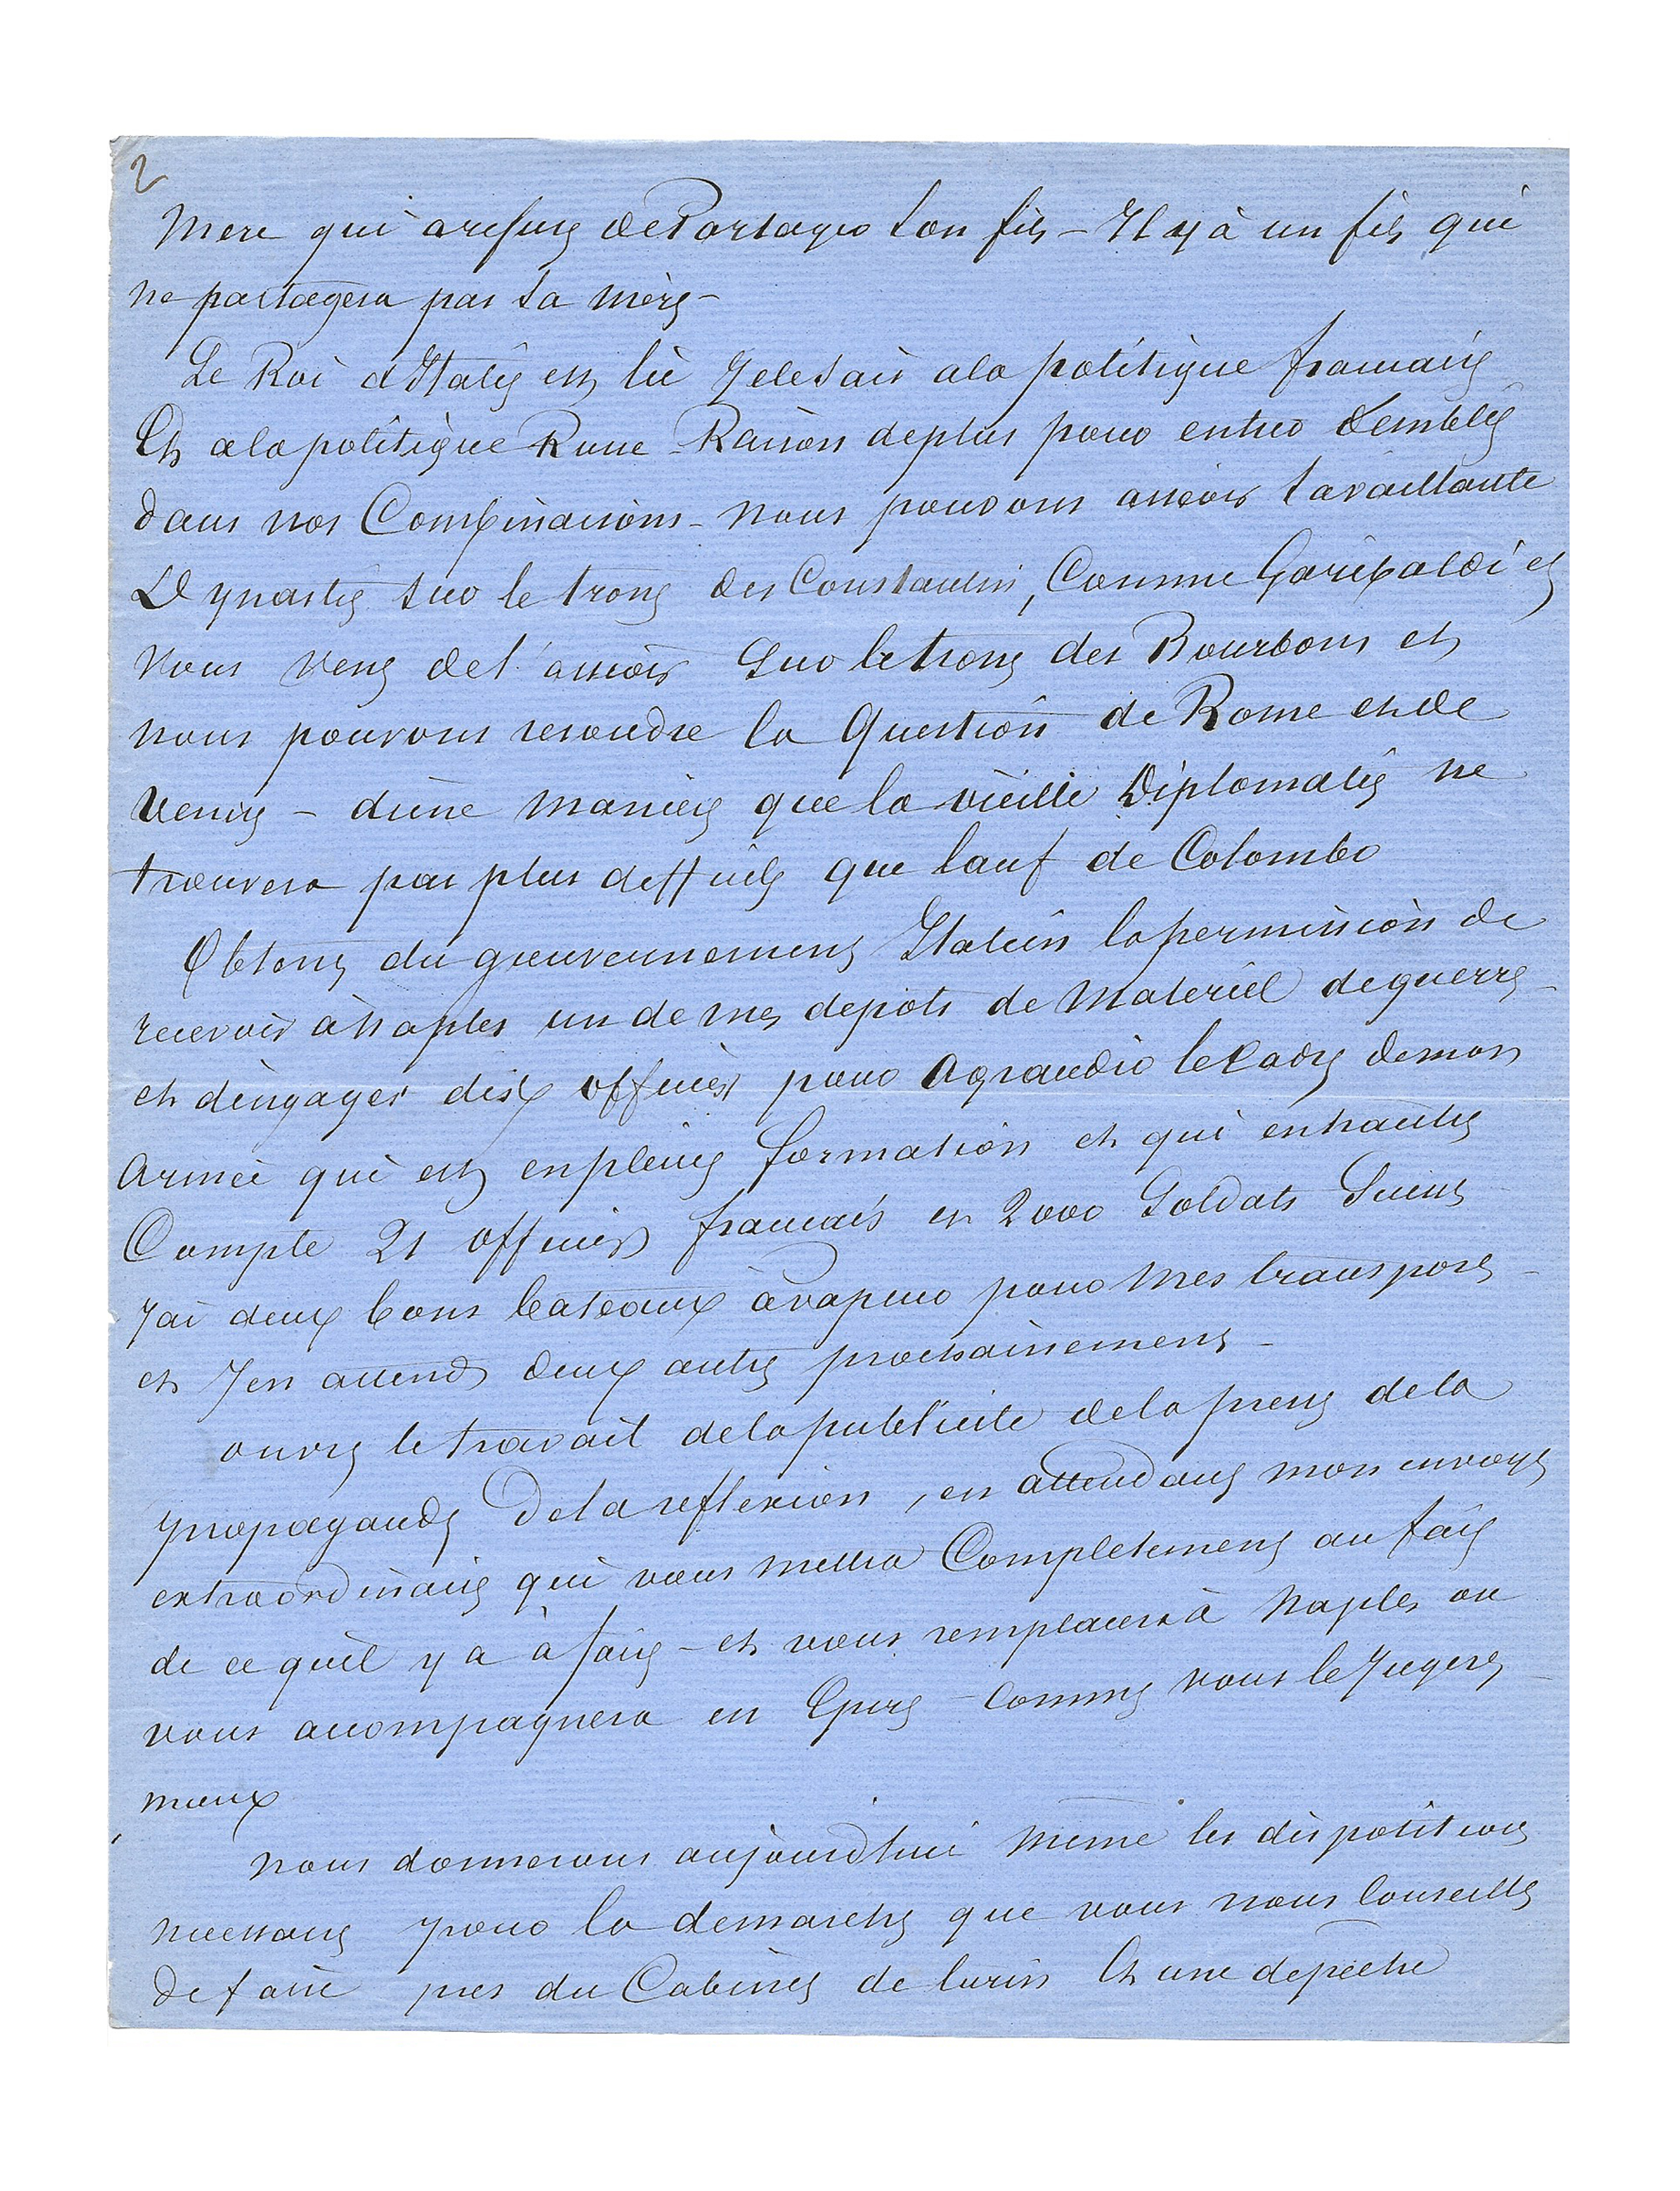 2
Mere qui a refusé de Partager son fils – Il y à un fils qui
ne partagera pas sa mère –
Le Roi d'Italie est lié Je le sais a la politique francaise
Et a la politique Russe Raison de plus pour entrer d'emblée
dans nos Combinaisons – nous pouvons asseoir sa vaillante
Dynastie sur le trone des Constantin, Comme Garibaldi et
nous vens de l'asseoir sur le trone des Bourbons et
nous pouvons resoudre la Question de Rome et de
Venise – d'une maniere que la vieille Diplomatie ne
trouvera pas plus difficile que l'auf de Colombo
Obtenez du gouvernement Italien la permission de
recevoir à Naples un de mes depots de Materiel de guerre –
et d'engager dix officiers pour agrandir le Cadre de mon
Armée qui est en pleine formation et qui
Compte 21 officiers francais et 2000 Soldats
J'ai deux bons bateaux à vapeur pour mes transports –
et J'en attends deux autres prochainement –
ouvrez le travail de la publicité de la presse de la
propagande De la reflexion, en attendant mon envoyé
extraordinaire qui vous mettra Completement au fait
de ce qu'il y a à faire – et vous remplacera à Naples ou
vous acompagnera en Epire – Comme vous le Jugerez –
mieux
nous donnerons aujourd'hui même les dispositions
necessaires pour la demarche que vous nous Conseillez
de faire pres du Cabinet de Turin Et une depêche